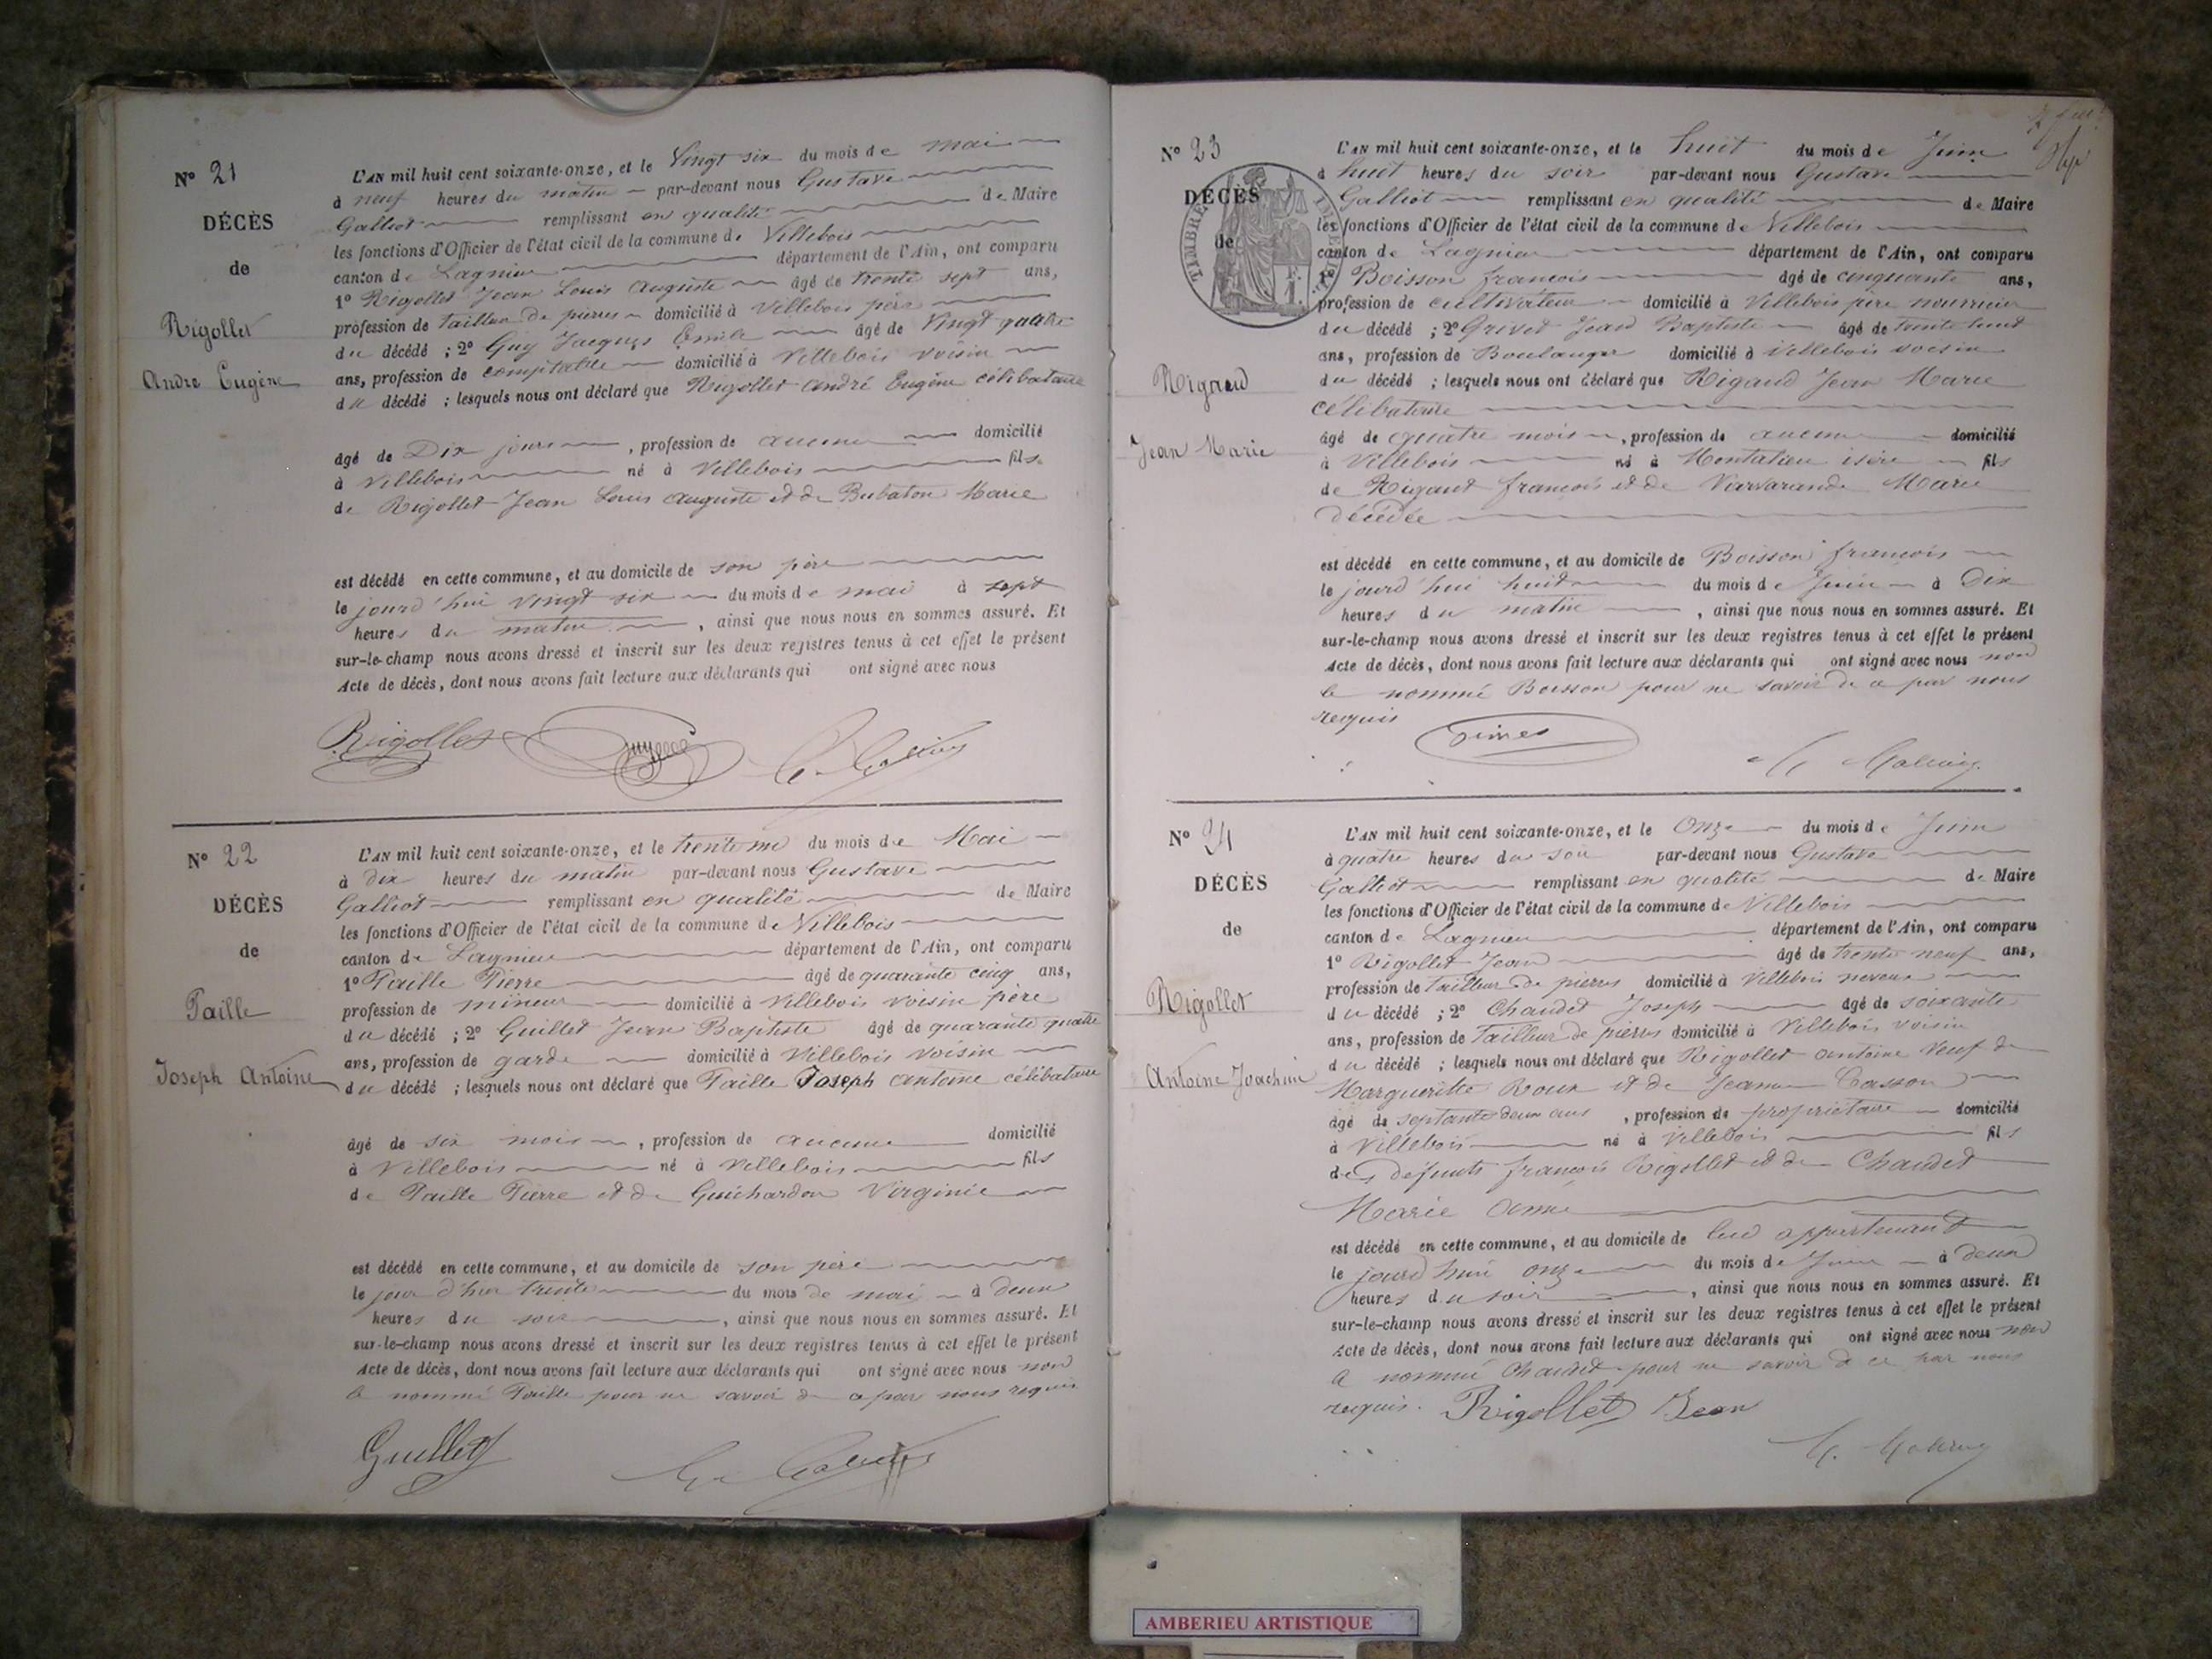 N° 21
DÉCÈS
de
Rigollet
André Eugène
L'AN mil huit cent soixante-onze, et le Vingt six du mois de mai
à neuf heures du matin par-devant nous Gustave
Galliot remplissant en qualité de Maire
les fonctions d'Officier de l'état civil de la commune de Villebois
canton de Lagnieu département de l'Ain, ont comparu
1° Rigollet Jean Louis Auguste âgé de trente sept ans,
profession de tailleur de pierres domicilié à Villebois père
du décédé ; 2° Guy Jacques Emile âgé de Vingt quatre
ans, profession de comptable domicilié à Villebois voisin
du décédé ; lesquels nous ont déclaré que Rigollet André Eugène célibataire
âgé de Dix jours , profession de aucune domicilié
à Villebois né à Villebois fils
de Rigollet Jean Louis Auguste et de Bubaton Marie
est décédé en cette commune, et au domicile de son père
le jourd'hui vingt six du mois de mai à sept
heures du matin , ainsi que nous nous en sommes assuré. Et
sur-le-champ nous avons dressé et inscrit sur les deux registres tenus à cet effet le présent
Acte de décès, dont nous avons fait lecture aux déclarants qui ont signé avec nous
Rigollet Guy
N° 22
DÉCÈS
de
Paille
Joseph Antoine
L'AN mil huit cent soixante-onze, et le trente un du mois de Mai
à dix heures du matin par-devant nous Gustave
Galliot remplissant en qualité de Maire
les fonctions d'Officier de l'état civil de la commune de Villebois
canton de Lagnieu département de l'Ain, ont comparu
1° Paille Pierre âgé de quarante cinq ans,
profession de mineur domicilié à Villebois voisin père
du décédé ; 2° Guillet Jean Baptiste âgé de quarante quatre
ans, profession de garde domicilié à Villebois voisin
du décédé ; lesquels nous ont déclaré que Paille Joseph Antoine célibataire
âgé de six mois , profession de aucune domicilié
à Villebois né à Villebois fils
de Paille Pierre et de Guichardon Virginie
est décédé en cette commune, et au domicile de son père
le jour d'hier trente du mois de mai à deux
heures du soir , ainsi que nous nous en sommes assuré. Et
sur-le-champ nous avons dressé et inscrit sur les deux registres tenus à cet effet le présent
Acte de décès, dont nous avons fait lecture aux déclarants qui ont signé avec nous non
le nommé Paille pour ne savoir de ce par nous requis
Guillet
N° 23
DÉCÈS
de
TIMBRE
Rigaud
Jean Marie
L'AN mil huit cent soixante-onze, et le huit du mois de Juin
à huit heures du soir par-devant nous Gustave
Galliot remplissant en qualité de Maire
les fonctions d'Officier de l'état civil de la commune de Villebois
canton de Lagnieu département de l'Ain, ont comparu
1° Boisson françois âgé de cinquante ans,
profession de cultivateur domicilié à Villebois père nourricier
du décédé ; 2° Grivet Jean Baptiste âgé de trente huit
ans, profession de Boulanger domicilié à Villebois voisin
du décédé ; lesquels nous ont déclaré que Rigaud Jean Marie
célibataire
âgé de quatre mois , profession de aucune domicilié
à Villebois né à Montalieu isère fils
de Rigaud françois et de Varvarande Marie
décédée
est décédé en cette commune, et au domicile de Boisson françois
le jourd'hui huit du mois de Juin à Dix
heures du matin , ainsi que nous nous en sommes assuré. Et
sur-le-champ nous avons dressé et inscrit sur les deux registres tenus à cet effet le présent
Acte de décès, dont nous avons fait lecture aux déclarants qui ont signé avec nous non
le nommé Boisson pour ne savoir de ce par nous
requis
N° 24
DÉCÈS
de
Rigollet
Antoine Joachim
L'AN mil huit cent soixante-onze, et le Onze du mois de Juin
à quatre heures du soir par-devant nous Gustave
Galliot remplissant en qualité de Maire
les fonctions d'Officier de l'état civil de la commune de Villebois
canton de Lagnieu département de l'Ain, ont comparu
1° Rigollet Jean âgé de trente neuf ans,
profession de tailleur de pierres domicilié à Villebois neveux
du décédé ; 2° Chaudet Joseph âgé de soixante
ans, profession de tailleur de pierres domicilié à Villebois voisin
du décédé ; lesquels nous ont déclaré que Rigollet antoine Veuf de
Margueritte Roux et de Jeanne Casson
âgé de septante deux ans , profession de propriétaire domicilié
à Villebois né à Villebois fils
des défunts françois Rigollet et de Chaudet
Marie Anne
est décédé en cette commune, et au domicile de lui appartenant
le jourd'hui onze du mois de Juin à deux
heures du soir , ainsi que nous nous en sommes assuré. Et
sur-le-champ nous avons dressé et inscrit sur les deux registres tenus à cet effet le présent
Acte de décès, dont nous avons fait lecture aux déclarants qui ont signé avec nous non
le nommé Chaudet pour ne savoir de ce par nous
requis. Rigollet Jean
AMBERIEU ARTISTIQUE